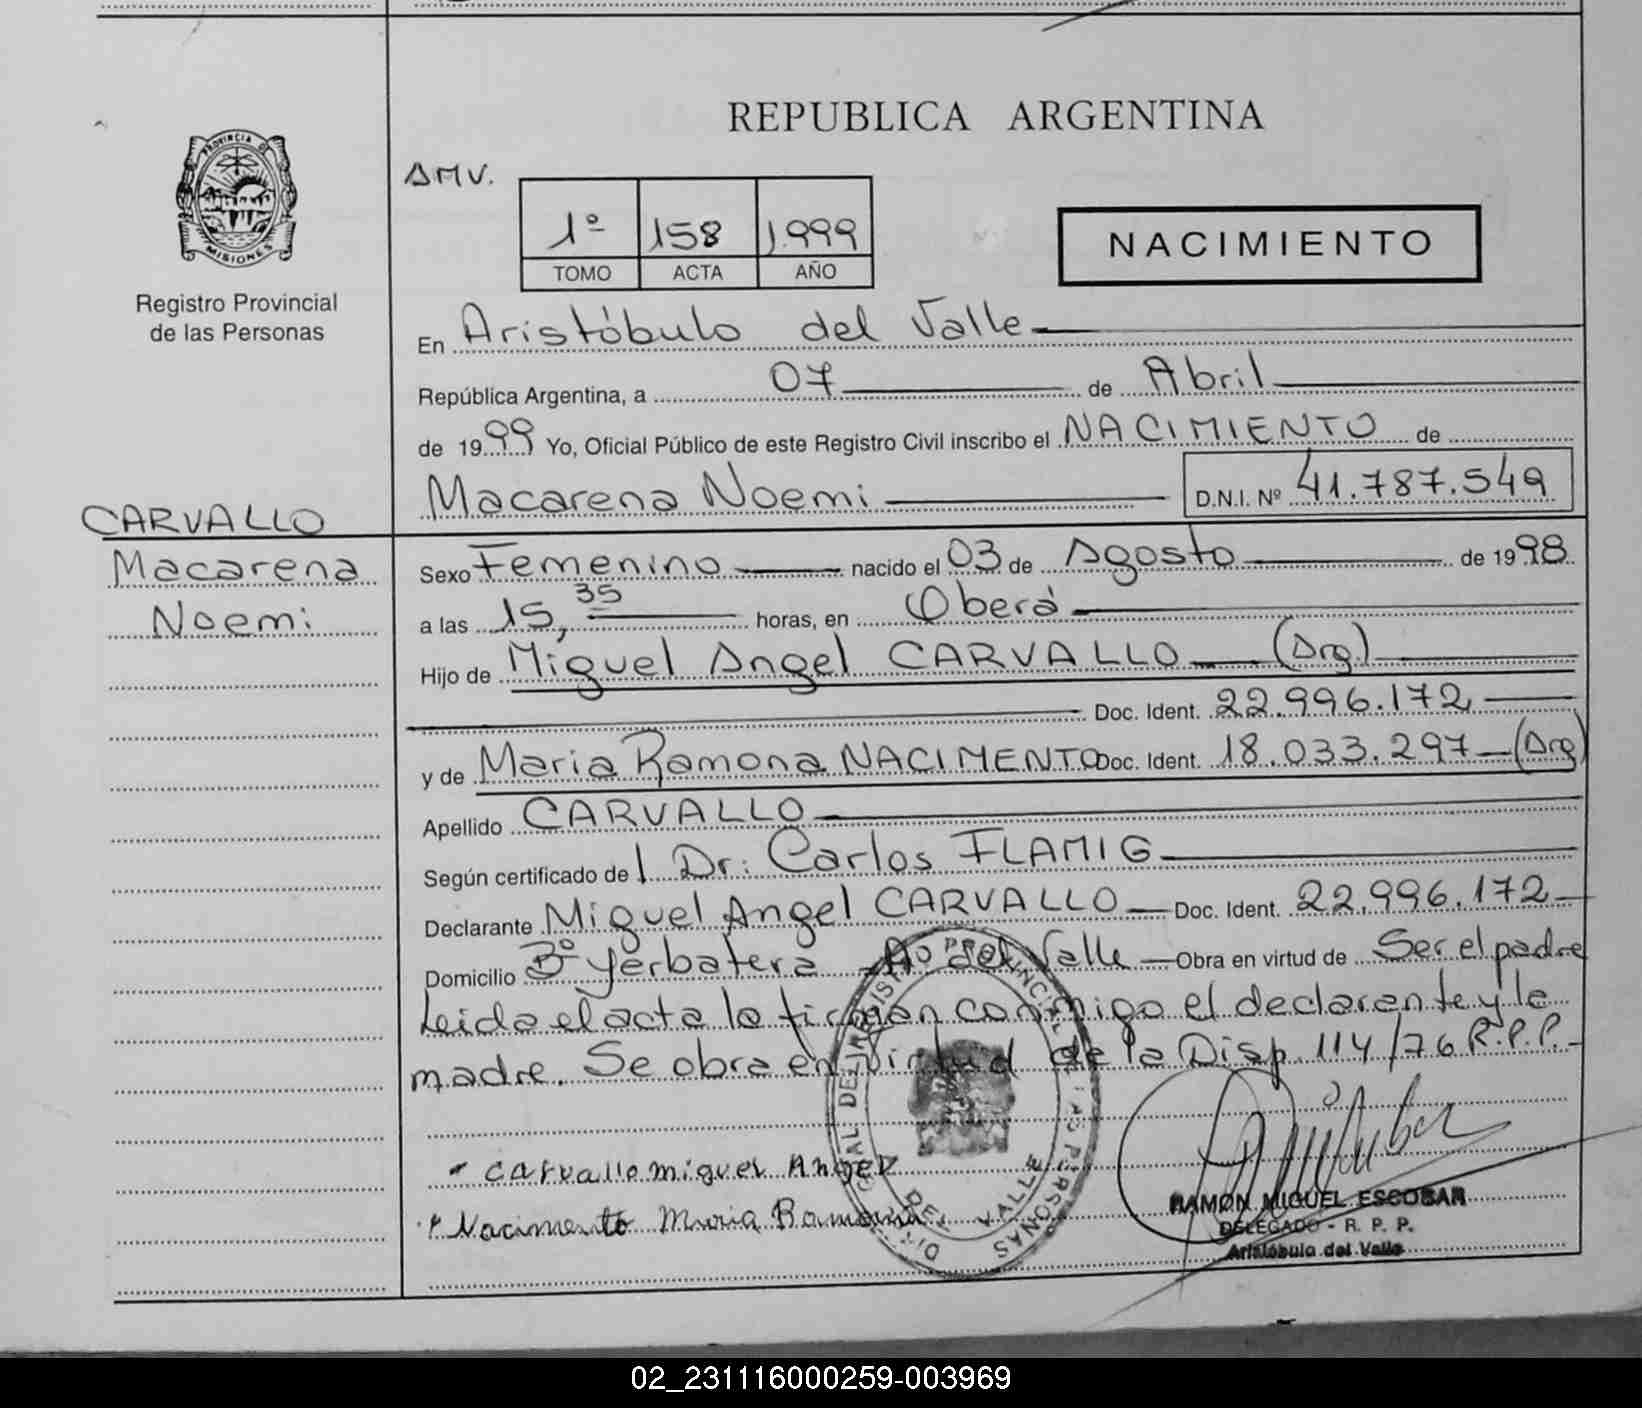 REPUBLICA ARGENTINA
PROVINCIA DE
MISIONES
Registro Provincial
de las Personas
AMV.
1º 158 1.999
TOMO ACTA AÑO
NACIMIENTO
En Aristóbulo del Valle
República Argentina, a 07 de Abril
de 1999 Yo, Oficial Público de este Registro Civil inscribo el NACIMIENTO de
Macarena Noemi D.N.I. Nº 41.787.549
CARVALLO
Macarena
Noemi
Sexo Femenino nacido el 03 de Agosto de 1998
a las 15,35 horas, en Oberá
Hijo de Miguel Angel CARVALLO (Arg)
Doc. Ident. 22.996.172
y de Maria Ramona NACIMENTO Doc. Ident. 18.033.297 (Arg)
Apellido CARVALLO
Según certificado de Dr: Carlos FLAMIG
Declarante Miguel Angel CARVALLO Doc. Ident. 22.996.172
Domicilio Bº Yerbatera Aº del Valle Obra en virtud de Ser el padre
Leida el acta la firman conmigo el declarante y la
madre. Se obra en virtud de la Disp. 114/76 R.P.P.
Carvallo miguel Angel
Nacimento Maria Ramona
RAMON MIGUEL ESCOBAR
DELEGADO - R. P. P.
Aristóbulo del Valle
02_231116000259-003969